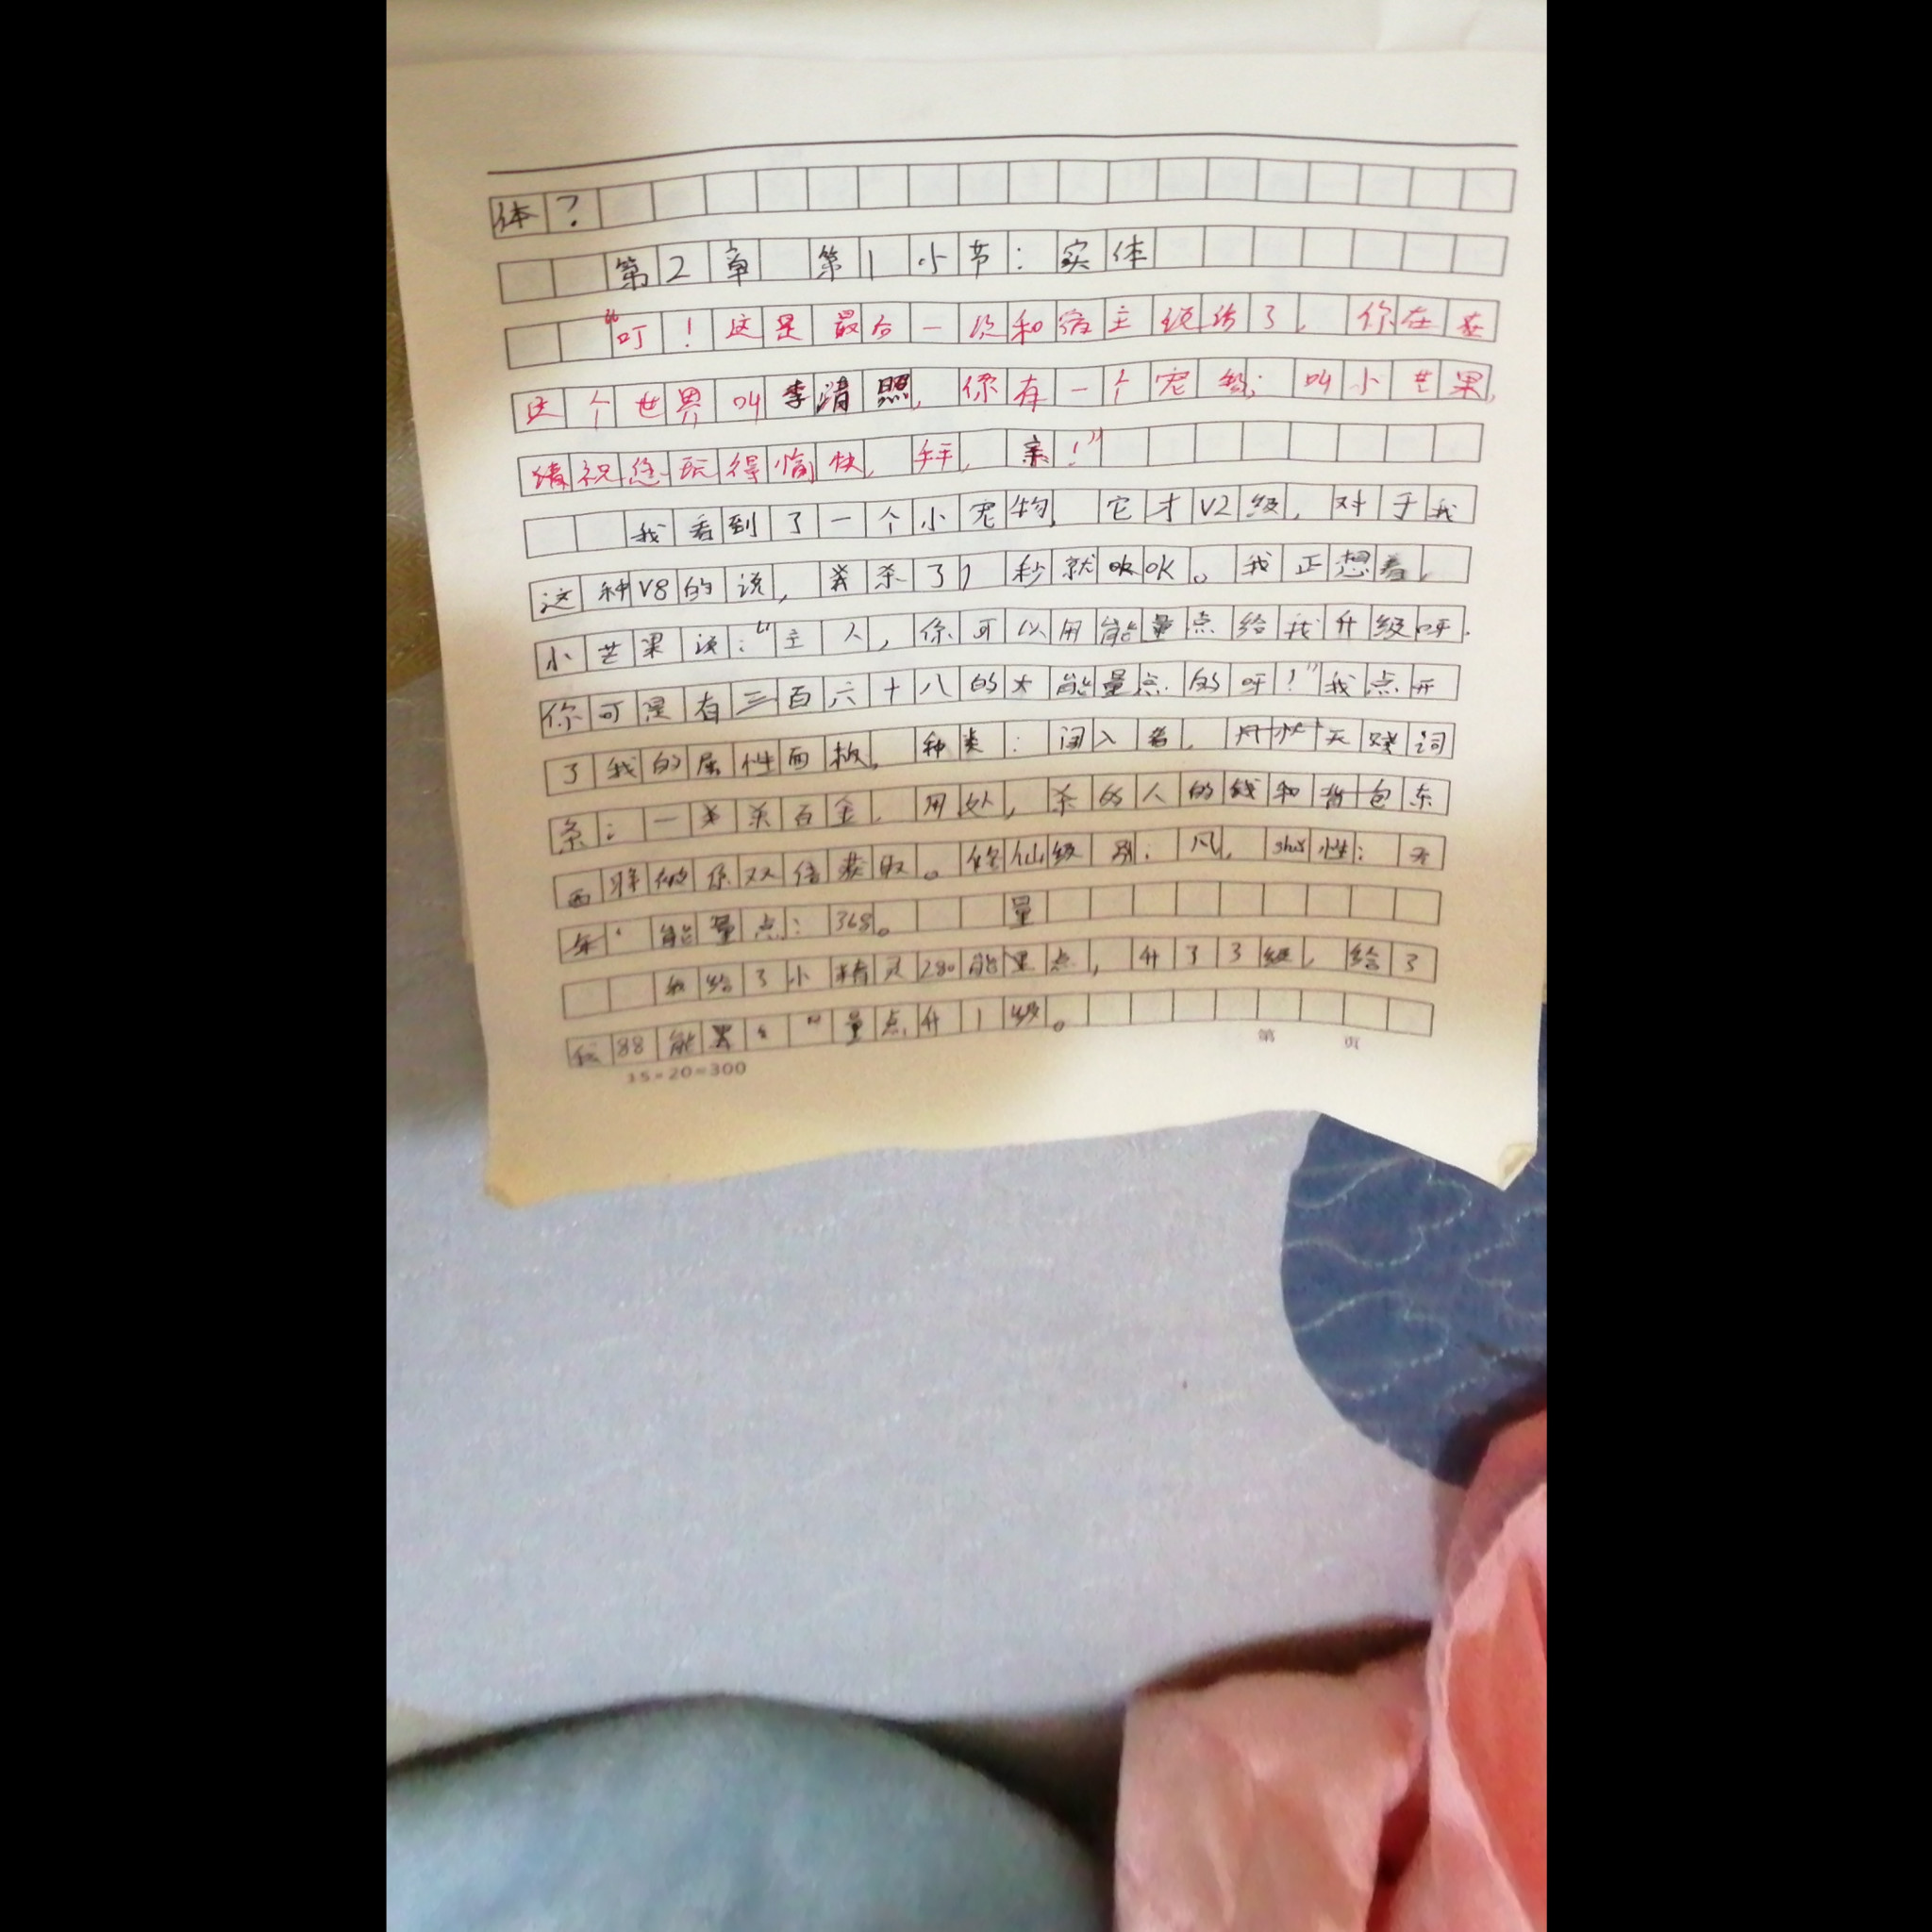 体？
第2章 第1小节：实体
“叮！这是最后一次和宿主说话了，你在在
这个世界叫李清照，你有一个宠物；叫小芒果，
请祝您玩得愉快，拜，亲！”
我看到了一个小宠物，它才V2级，对于我
这种V8的说，杀了1秒就OK。我正想着，
小芒果说：“主人，你可以用能量点给我升级呀，
你可是有三百六十八的大能量点的呀！”我点开
了我的属性面板，种类：闯入者，天赋词
条：一杀百金，用处，杀的人的钱和背包东
西将被你双倍获取。修仙级别：凡，shux性：无
年，能量点：368。 量
我给了小精灵280能量点，升了3级，给了
我88能量点升1级。
15×20=300
第 页